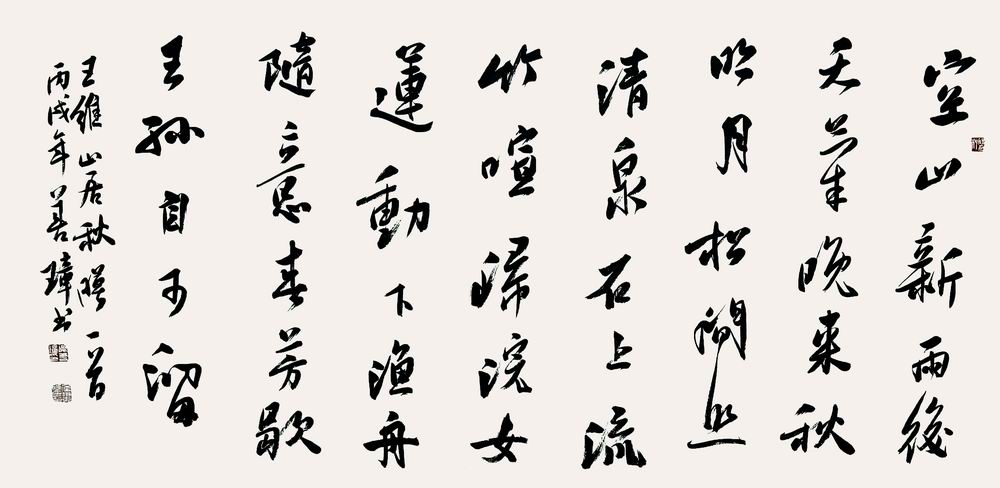 空山新雨後
天氣晚来秋
明月松間照
清泉石上流
竹喧歸浣女
蓮動下漁舟
隨意春芳歇
王孫自可留
王維山居秋暝一首
丙戌年善璋书